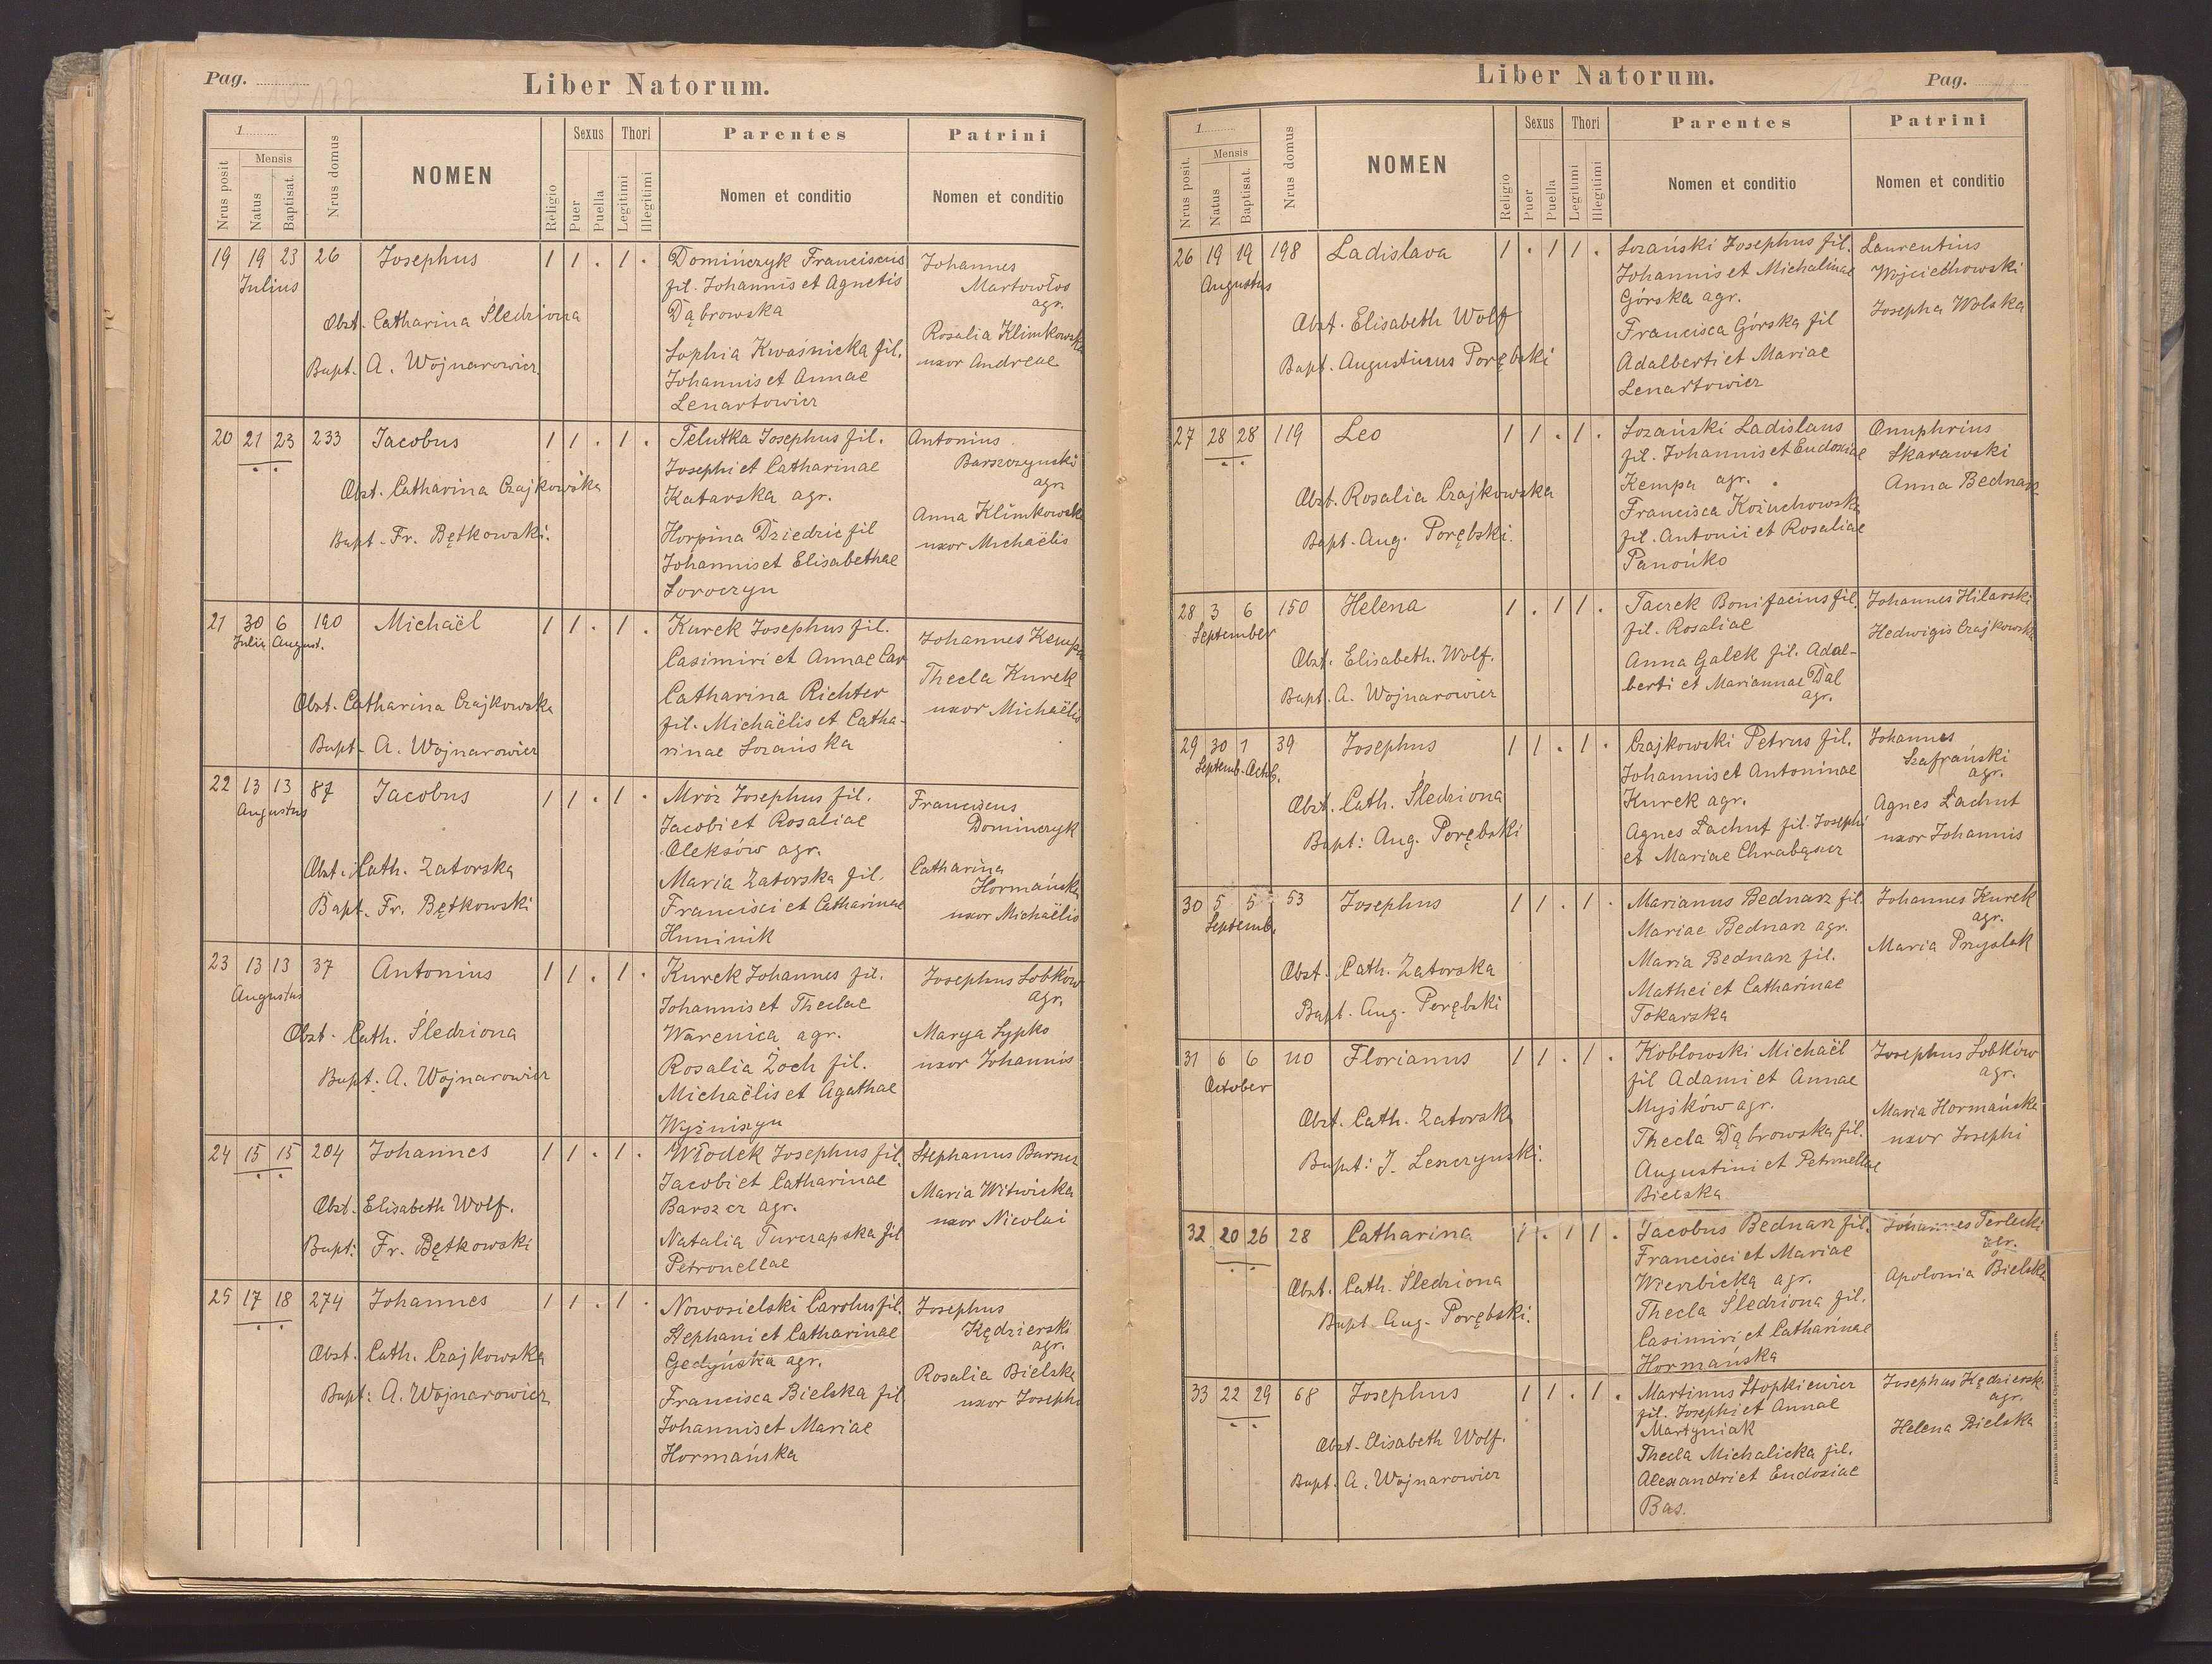 Pag.
Liber Natorum.
1
Nrus posit
Mensis
Natus
Baptisat.
Nrus domus
NOMEN
Religio
Sexus
Puer
Puella
Thori
Legitimi
Illegitimi
Parentes
Nomen et conditio
Patrini
Nomen et conditio
19 19 23 26 Josephus 1 1 . 1 .
Julius
Obst. Catharina Śledziona
Bapt. A. Wojnarowicz.
Domińczyk Franciscus
fil. Johannis et Agnetis
Dąbrowska
Sophia Kwaśnicka fil.
Johannis et Annae
Lenartowicz
Johannes
Martowłos
agr.
Rosalia Klimkowska
uxor Andreae
20 21 23 233 Jacobus 1 1 . 1 .
Obst. Catharina Czajkowska
Bapt. Fr. Bętkowski.
Telutka Josephus fil.
Josephi et Catharinae
Katarska agr.
Horpina Dziedzic fil
Johannis et Elisabethae
Soroczyn
Antonius
Barszczynski
agr.
Anna Klimkowska
uxor Michaëlis
21 30 6 190 Michaël 1 1 . 1 .
Julia August.
Obst. Catharina Czajkowska
Bapt. A. Wojnarowicz
Kurek Josephus fil.
Casimiri et Annae Car
Catharina Richter
fil. Michaëlis et Catha-
rinae Sozańska
Johannes Kempa
Thecla Kurek
uxor Michaëlis
22 13 13 87 Jacobus 1 1 . 1 .
Augustus
Obst. Cath. Zatorska
Bapt. Fr. Bętkowski
Mróz Josephus fil.
Jacobi et Rosaliae
Oleksów agr.
Maria Zatorska fil.
Francisci et Catharinae
Huninik
Franciscus
Dominczyk
Catharina
Hormańska
uxor Michaëlis
23 13 13 37 Antonius 1 1 . 1 .
Augustus
Obst. Cath. Śledziona
Bapt. A. Wojnarowicz
Kurek Johannes fil.
Johannis et Theclae
Warenica agr.
Rosalia Zoch fil.
Michaëlis et Agathae
Wyżniszyn
Josephus Sobków
agr.
Marya Sypko
uxor Johannis
24 15 15 204 Johannes 1 1 . 1 .
Obst. Elisabeth Wolf.
Bapt: Fr. Bętkowski
Włodek Josephus fil.
Jacobi et Catharinae
Barszcz agr.
Natalia Turczapska fil
Petronellae
Stephanus
Maria Witwicka
uxor Nicolai
25 17 18 274 Johannes 1 1 . 1 .
Obst. Cath. Czajkowska
Bapt: A. Wojnarowicz
Nowosielski Carolus fil.
Stephani et Catharinae
Gedyńska agr.
Francisca Bielska fil
Johannis et Mariae
Hormańska
Josephus
Kędzierski
agr.
Rosalia Bielska
uxor Josephi
Liber Natorum.
Pag.
1
Nrus posit.
Mensis
Natus
Baptisat.
Nrus domus
NOMEN
Religio
Sexus
Puer
Puella
Thori
Legitimi
Illegitimi
Parentes
Nomen et conditio
Patrini
Nomen et conditio
26 19 19 198 Ladislava 1 . 1 1 .
Augustus
Obst. Elisabeth Wolf
Bapt. Augustinus Porębski
Sozański Josephus fil.
Johannis et Michalinae
Górska agr.
Francisca Górska fil
Adalberti et Mariae
Lenartowicz
Laurentius
Wojciechowski
Josepha Wolska
27 28 28 119 Leo 1 1 . 1 .
Obst. Rosalia Czajkowska
Bapt. Aug. Porębski.
Sozański Ladislaus
fil. Johannis et Eudoxiae
Kempa agr.
Francisca Kożuchowska
fil. Antonii et Rosaliae
Panońko
Onuphrius
Skarawski
Anna Bednarz
28 3 6 150 Helena 1 . 1 1 .
September
Obst. Elisabeth. Wolf.
Bapt. A. Wojnarowicz
Taczek Bonifacius fil.
fil. Rosaliae
Anna Galek fil. Adal-
berti et Mariannae Dal
agr.
Johannes Hilarski
Hedwigis Czajkowska
29 30 1 39 Josephus 1 1 . 1 .
Septemb. Octob.
Obst. Cath. Śledziona
Bapt: Aug. Porębski
Czajkowski Petrus fil.
Johannis et Antoninae
Kurek agr.
Agnes Łachut fil. Josephi
et Mariae Chrabąszcz
Johannes
Szafrański
agr.
Agnes Łachut
uxor Johannis
30 5 5 53 Josephus 1 1 . 1 .
Septemb.
Obst. Cath. Zatorska
Bapt. Aug. Porębski
Marianus Bednarz fil.
Mariae Bednarz agr.
Maria Bednarz fil.
Mathei et Catharinae
Tokarska
Johannes Kurek
agr.
Maria Przyslak
31 6 6 110 Florianus 1 1 . 1 .
October
Obst. Cath. Zatorska
Bapt: J. Lenczynski.
Koblowski Michaël
fil Adami et Annae
Myśków agr.
Thecla Dąbrowska fil.
Augustini et Petronellae
Bielska
Josephus Sobków
agr.
Maria Hormańska
uxor Josephi
32 20 26 28 Catharina 1 . 1 1 .
Obst. Cath. Śledziona
Bapt Aug. Porębski.
Jacobus Bednarz fil.
Francisci et Mariae
Wierzbicka agr.
Thecla Śledziona fil.
Casimiri et Catharinae
Hormańska
Johannes Terlecki
agr.
Apolonia Bielska
33 22 29 68 Josephus 1 1 . 1 .
Obst. Elisabeth Wolf.
Bapt. A. Wojnarowicz
Martinus Stopkiewicz
fil. Josephi et Annae
Martyniak
Thecla Michalicka fil.
Alexandri et Eudoxiae
Bas.
Josephus Kędziersk
agr.
Helena Bielska